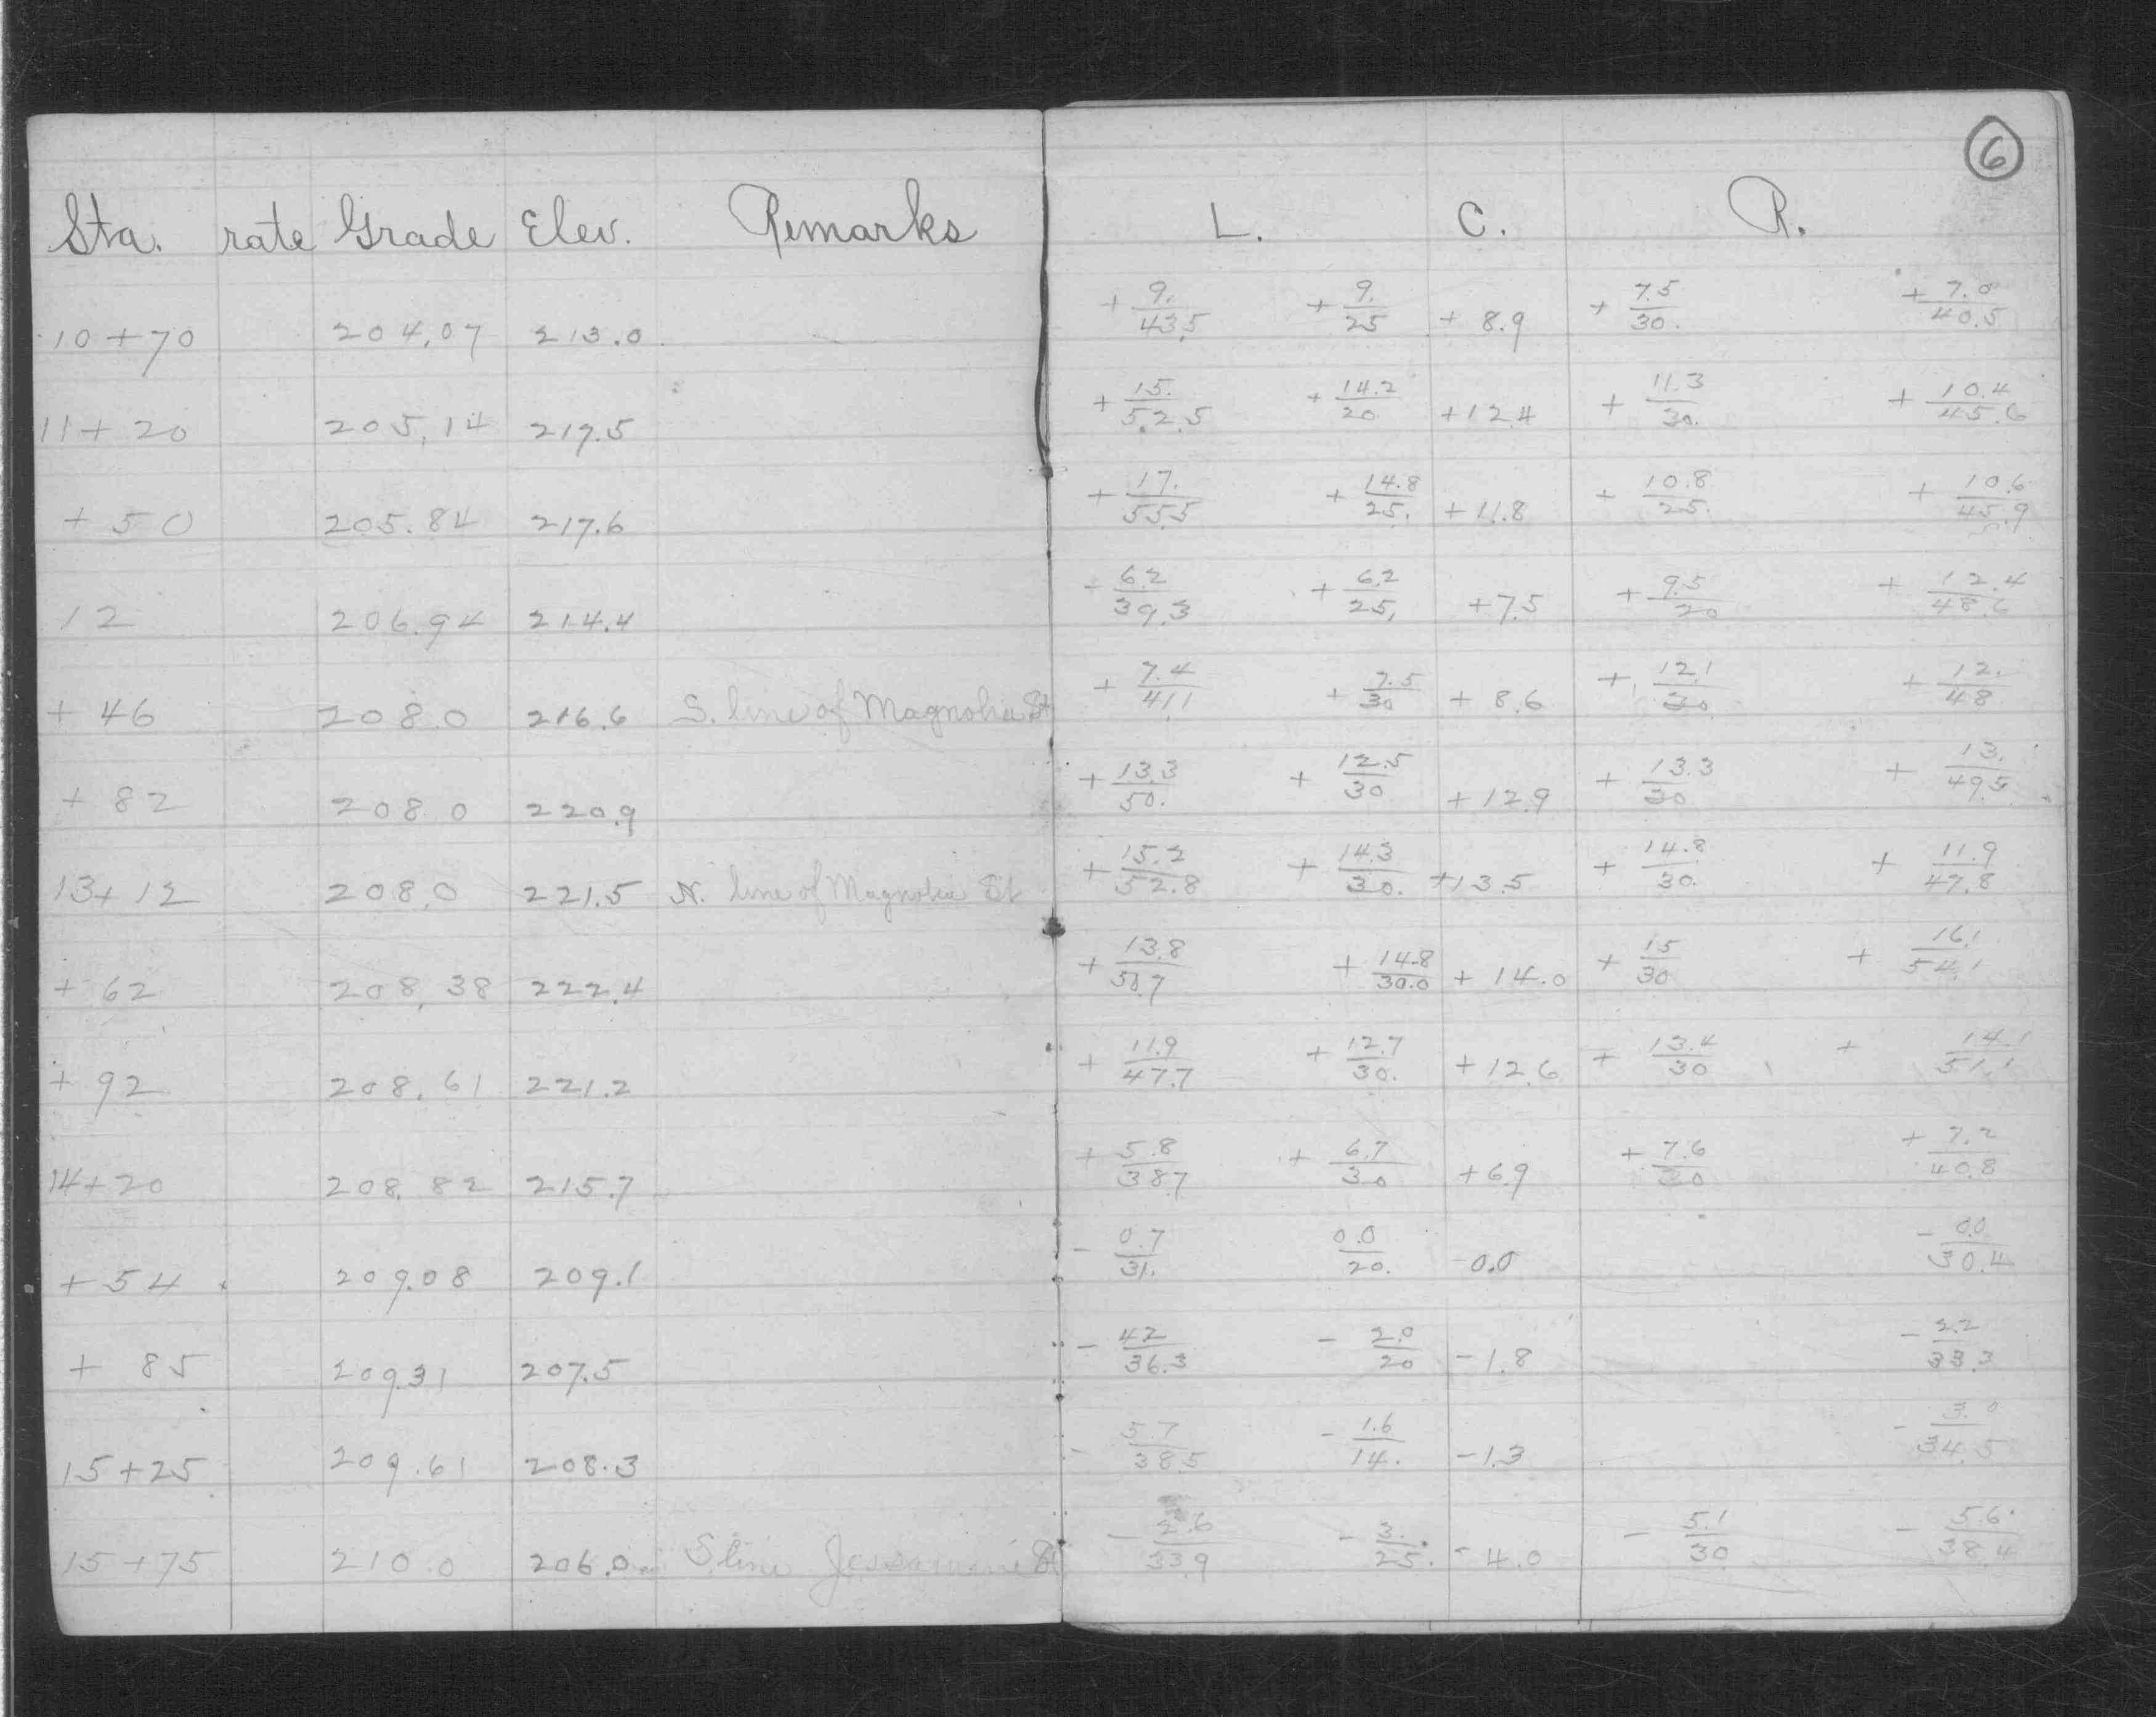 6
Sta. rate Grade Elev. Remarks L. C. R.
10+70 204.07 213.0 + 9./43.5 + 9./25 + 8.9 + 7.5/30. + 7.0/40.5
11+20 205.14 217.5 + 15./52.5 + 14.2/20 +12.4 + 11.3/30. + 10.4/45.6
+50 205.84 217.6 + 17./55.5 + 14.8/25. +11.8 + 10.8/25. + 10.6/45.9
12 206.94 214.4 + 6.2/39.3 + 6.2/25. +7.5 + 9.5/20 + 12.4/48.6
+46 208.0 216.6 S. line of Magnolia St + 7.4/41.1 + 7.5/30 + 8.6 + 12.1/30 + 12./48
+82 208.0 220.9 + 13.3/50. + 12.5/30 +12.9 + 13.3/30 + 13./49.5
13+12 208.0 221.5 N. line of Magnolia St + 15.2/52.8 + 14.3/30. +13.5 + 14.8/30. + 11.9/47.8
+62 208.38 222.4 + 13.8/50.7 + 14.8/30.0 + 14.0 + 15/30 + 16.1/54.1
+92 208.61 221.2 + 11.9/47.7 + 12.7/30. +12.6 + 13.4/30 + 14.1/51.1
14+20 208.82 215.7 + 5.8/38.7 + 6.7/30 +6.9 + 7.6/30 + 7.2/40.8
+54 209.08 209.1 - 0.7/31. 0.0/20. -0.0 - 0.0/30.4
+85 209.31 207.5 - 4.2/36.3 - 2.0/20 -1.8 - 2.2/33.3
15+25 209.61 208.3 - 5.7/38.5 - 1.6/14. -1.3 - 3.0/34.5
15+75 210.0 206.0 S. line Jessamine St - 2.6/33.9 - 3./25. -4.0 - 5.1/30 - 5.6/38.4